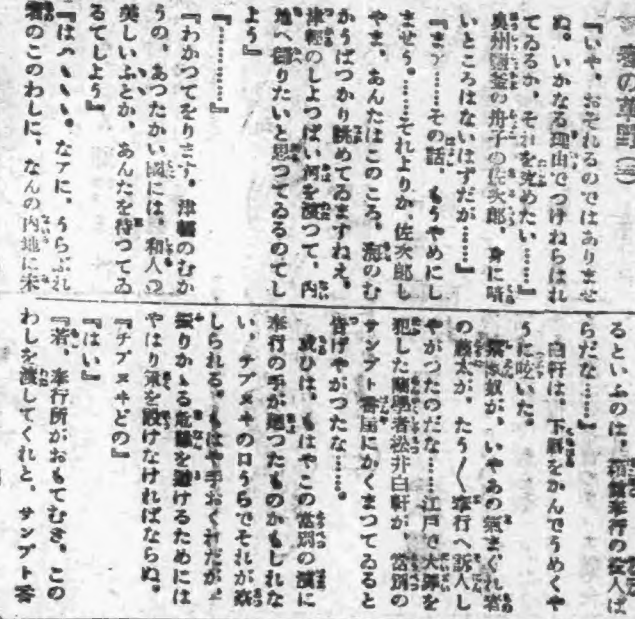 春の草野(三)
『いや、おそれるのではありませ
ぬ。いかなる理由でつけねらはれ
てゐるか、それを究めたい……』
奥州鹽釜の舟子の佐次郎、身に暗
いところはないはずだが……』
『まア……その話、もうやめにし
ませう。……それよりか、佐次郎し
やま、あんたはこのころ、海のむ
かうばつかり眺めてゐますねえ。
津輕のしよつぱい河を渡つて、内
地へ歸りたいと思つてゐるのでし
よう』
『…………』
『わかつてをります。津輕のむか
うの、あつたかい國には、和人の
美しいふとが、あんたを待つてゐ
るでしよう』
『はゝゝゝ。なアに、うらぶれ
者のこのわしに、なんの内地に未
るといふのは、箱館奉行の役人ば
らだな……』
白軒は、下唇をかんでうめくや
うに呟いた。
いやあの氣まぐれ者
の藤太が、たう〳〵奉行へ訴人し
やがつたのだな……江戸で大罪を
犯した蘭學者松井白軒が、當別の
サンプト酋屋にかくまつてゐると
告げやがつたな……。
或ひは、もはやこの當別の濱に
奉行の手が廻つたものかもしれな
い、チプヌヰの口うらでそれが察
しられる。もはや手おくれだが、
振りかゝる危難を避けるためには
やはり策を設けなければならぬ。
『チプヌヰどの』
『はい』
『若、奉行所がおもてむき、この
わしを渡してくれと、サンプト酋